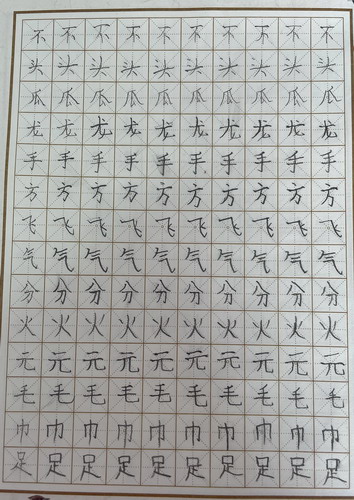 不不不不不不不不不不
头头头头头头头头头头
瓜瓜瓜瓜瓜瓜瓜瓜瓜瓜
尤尤尤尤尤尤尤尤尤尤
手手手手手手手手手手
方方方方方方方方方方
飞飞飞飞飞飞飞飞飞飞
气气气气气气气气气气
分分分分分分分分分分
火火火火火火火火火火
元元元元元元元元元元
毛毛毛毛毛毛毛毛毛毛
巾巾巾巾巾巾巾巾巾巾
足足足足足足足足足足